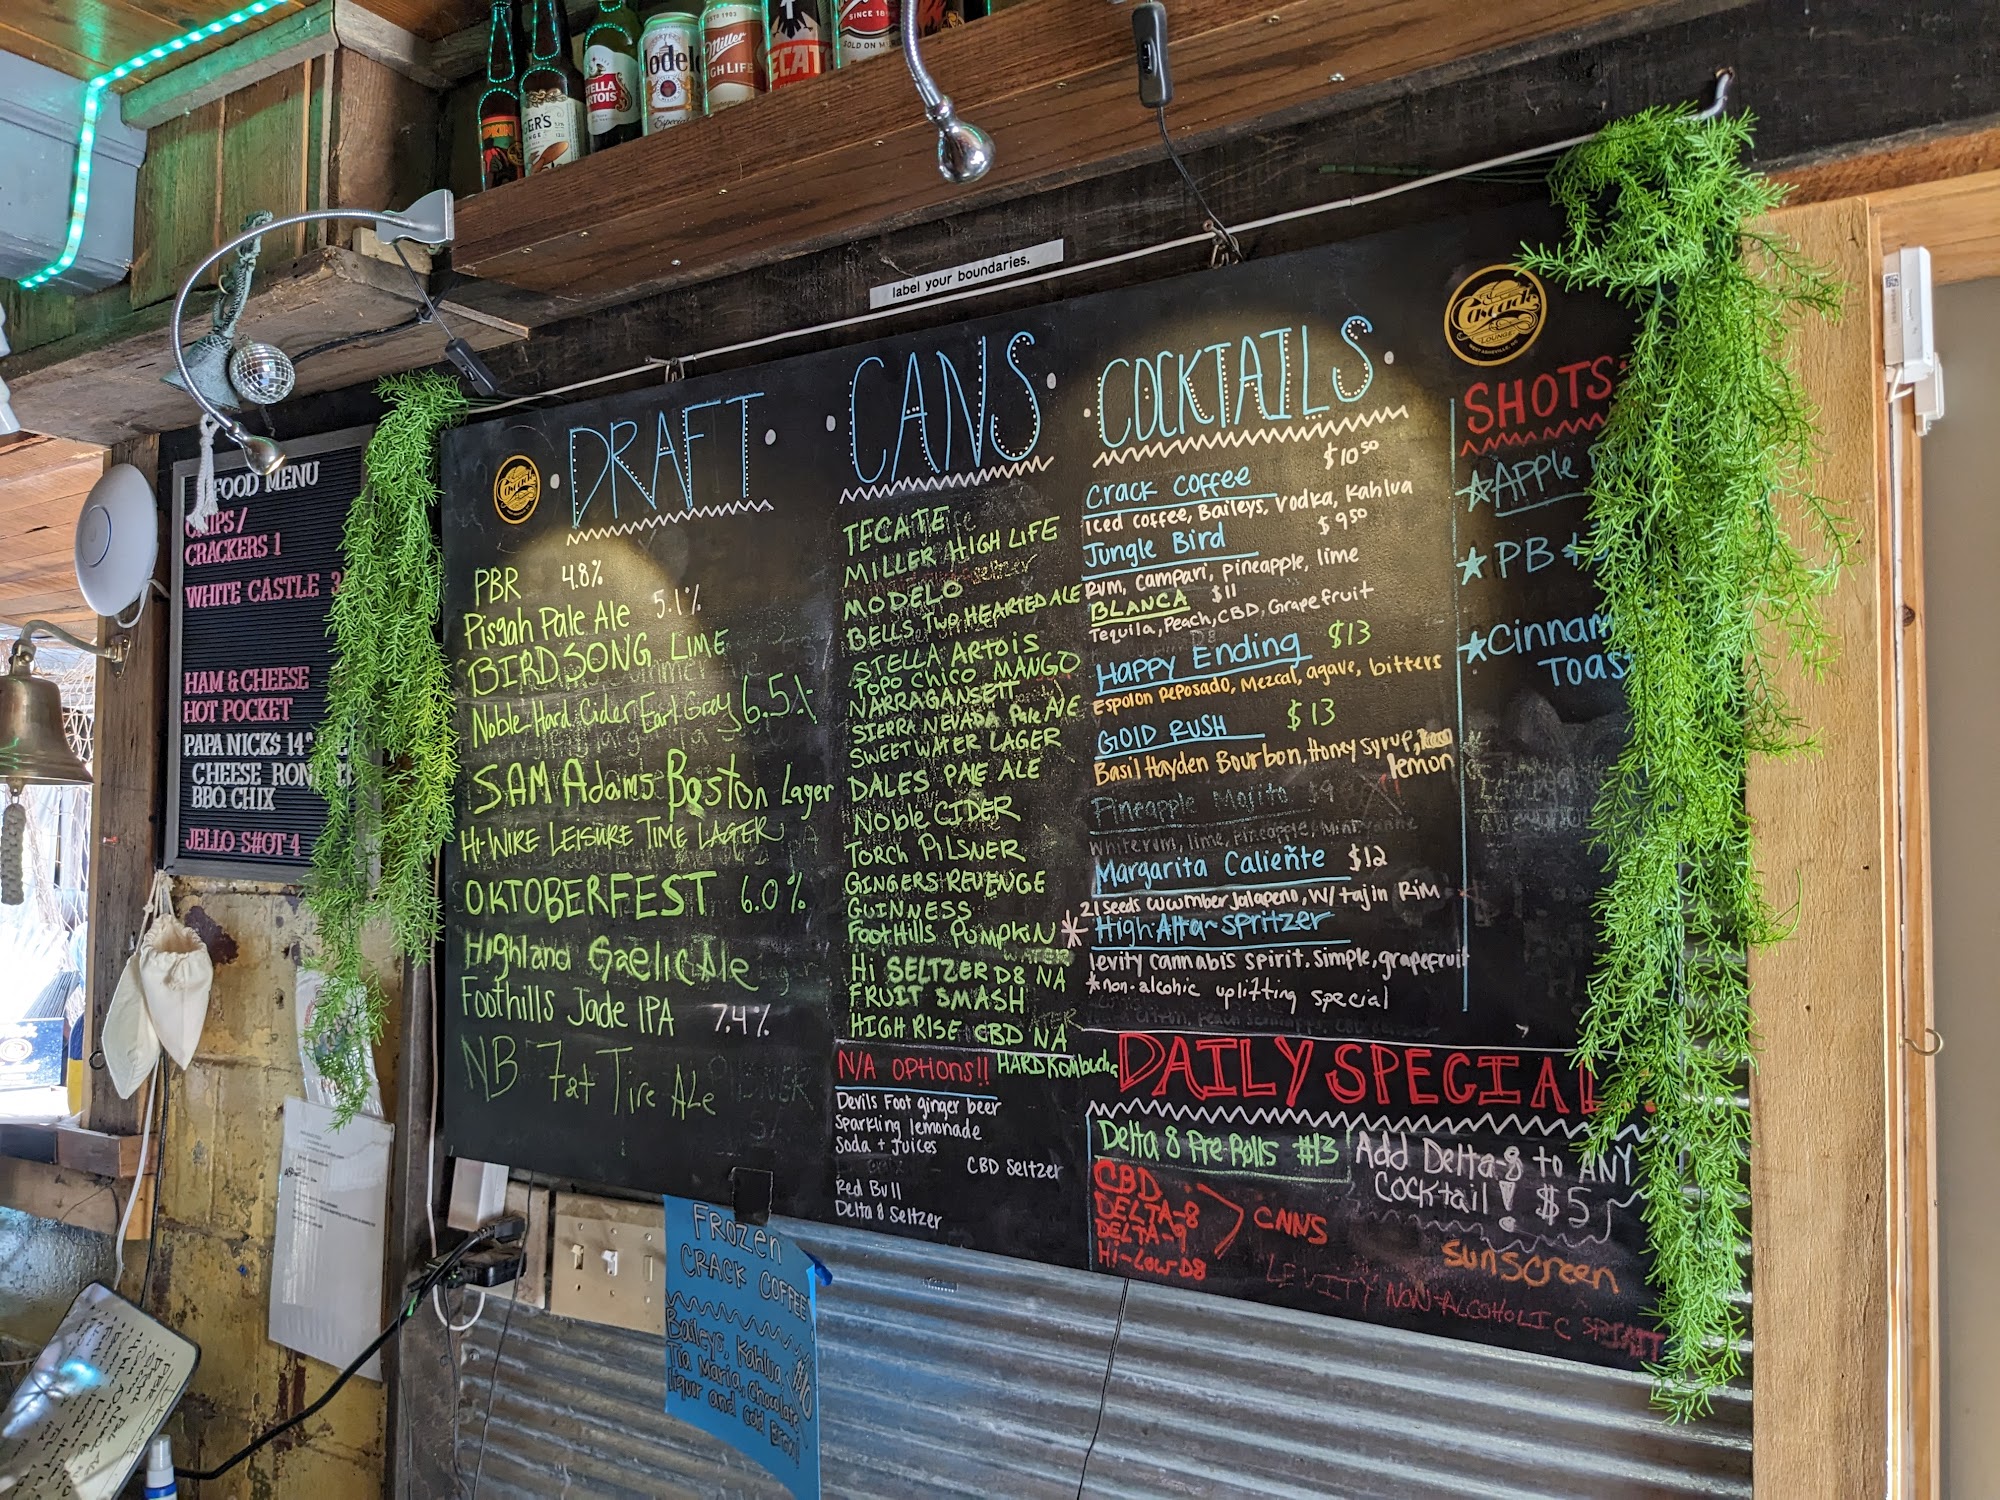 STELLA
ARTOIS
Modelo
Especial
Miller
HIGH LIFE
TECAT
SINCE 18
label your boundaries.
FOOD MENU
CHIPS /
CRACKERS 1
WHITE CASTLE 3
HAM & CHEESE
HOT POCKET
PAPA NICKS 14"
CHEESE RONI
BBQ CHIX
JELLO S#OT 4
Cascade
DRAFT
PBR 4.8%
Pisgah Pale Ale 5.1%
BIRDSONG LIME
Noble Hard Cider Earl Gray 6.5%
SAM Adams Boston Lager
Hi-WIRE LEISURE TIME LAGER
OKTOBERFEST 6.0%
Highland Gaelic Ale
Foothills Jade IPA 7.4%
NB Fat Tire Ale
CANS
TECATE
MILLER HIGH LIFE
MODELO
BELLS TWO HEARTED ALE
STELLA ARTOIS
TOPO CHICO MANGO
NARRAGANSETT
SIERRA NEVADA Pale Ale
SWEETWATER LAGER
DALES PALE ALE
Noble CIDER
TORCH PILSNER
GINGERS REVENGE
GUINNESS
Foothills PUMPKIN
Hi SELTZER D8 NA
FRUIT SMASH
HIGH RISE CBD NA
HARD Kombucha
N/A OPTIONS!!
Devils Foot ginger beer
Sparkling lemonade
Soda + Juices
CBD Seltzer
Red Bull
Delta 8 Seltzer
COCKTAILS
Crack Coffee $10 50
Iced coffee, Baileys, Vodka, Kahlua
Jungle Bird $9 50
Rum, campari, pineapple, lime
BLANCA $11
Tequila, Peach, CBD, Grapefruit
Happy Ending $13
Espolon Reposado, Mezcal, agave, bitters
GOLD RUSH $13
Basil Hayden Bourbon, Honey syrup,
lemon
Pineapple Mojito $9
White rum, lime, pineapple, Mint
Margarita Calieñte $12
21 seeds cucumber Jalapeno, w/ tajin Rim
* High Alta~Spritzer
levity cannabis spirit, simple, grapefruit
*non-alcohic uplifting special
Cascade
LOUNGE
WEST ASHEVILLE, NC
SHOTS:
APPLE
PB &
Cinnam
TOAS
DAILY SPECIAL
Delta 8 Pre Rolls #13
CBD
DELTA-8
DELTA-9
Hi-Low D8
CNNS
Add Delta-8 to ANY
Cocktail! $5
sunscreen
LEVITY NON-ALCOHOLIC SPIRIT
FROZEN
CRACK COFFEE
Baileys, Kahlua,
Tia Maria, Chocolate
liquor and Cold Brew!